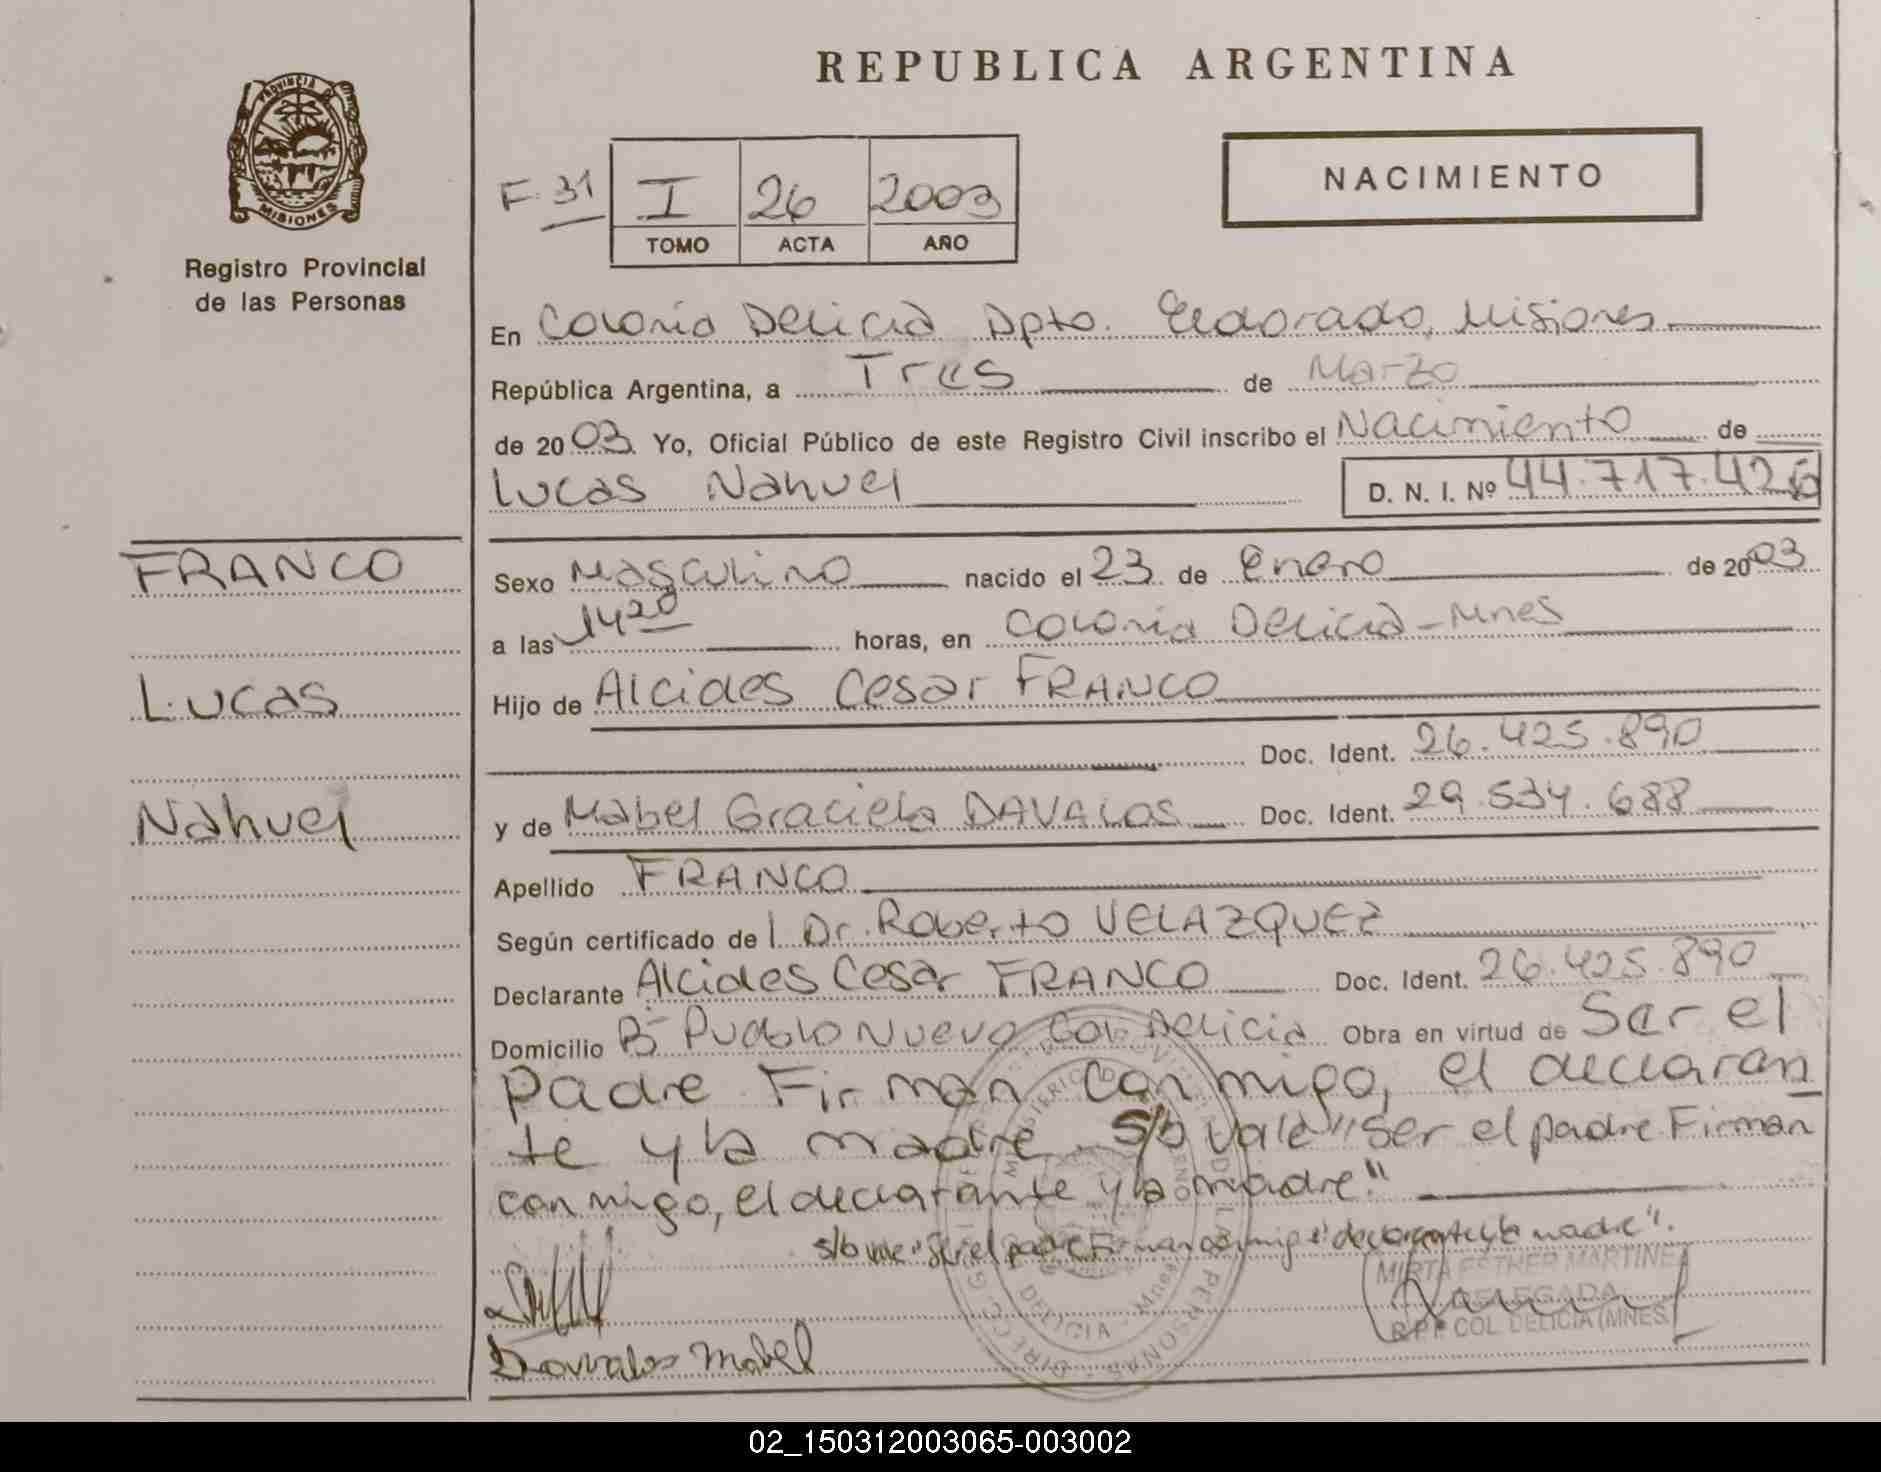 REPUBLICA ARGENTINA
PROVINCIA D
MISIONES
Registro Provincial
de las Personas
NACIMIENTO
F. 31 I 26 2003
TOMO ACTA AÑO
En Colonia Delicia Dpto. Eldorado, Misiones
República Argentina, a Tres de Marzo
de 2003. Yo, Oficial Público de este Registro Civil inscribo el Nacimiento de
Lucas Nahuel D. N. I. Nº 44.717.426
FRANCO
Lucas
Nahuel
Sexo Masculino nacido el 23 de Enero de 2003
a las 14 20 horas, en Colonia Delicia - Mnes
Hijo de Alcides Cesar FRANCO
Doc. Ident. 26.425.890
y de Mabel Graciela DAVALOS Doc. Ident. 29.534.688
Apellido FRANCO
Según certificado de l Dr. Roberto VELAZQUEZ
Declarante Alcides Cesar FRANCO Doc. Ident. 26.425.890
Domicilio Bº Pueblo Nuevo Col Delicia Obra en virtud de Ser el
padre Firman conmigo, el declaran
te y la madre. S/b vale "Ser el padre Firman
conmigo, el declarante y la madre".
s/b vale "Ser el padre Firman conmigo el declarante y la madre".
MIRTA ESTHER MARTINEZ
DELEGADA
R.P.P. COL. DELICIA (MNES.)
DELICIA - Mnes
Davalos Mabel
02_150312003065-003002